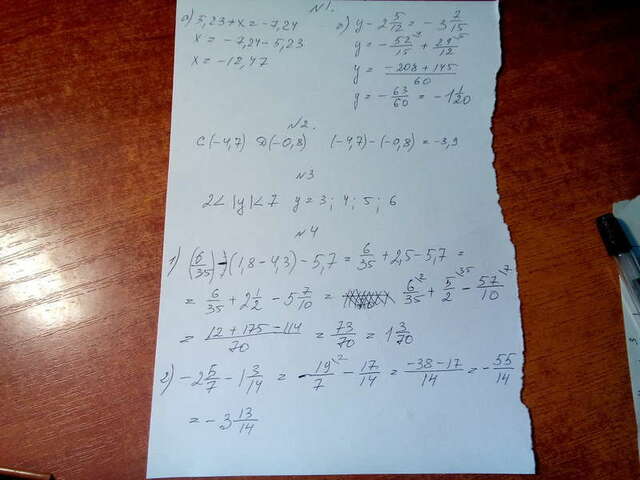 №1.
а) 5,23 + x = -7,24
x = -7,24 - 5,23
x = -12,47
г) y - 2 5/12 = -3 7/15
y = - 52/15 + 29/12
y = (-208 + 145)/60
y = - 63/60 = -1 1/20
№2.
C(-4,7) D(-0,8) (-4,7) - (-0,8) = -3,9
№3
2 < |y| < 7 y = 3; 4; 5; 6
№4
1) (6/35) - (1,8 - 4,3) - 5,7 = 6/35 + 2,5 - 5,7 =
= 6/35 + 2 1/2 - 5 7/10 = 6/35 + 5/2 - 57/10
= (12 + 175 - 114)/70 = 73/70 = 1 3/70
2) -2 5/7 - 1 3/14 = - 19/7 - 17/14 = (-38 - 17)/14 = - 55/14
= -3 13/14